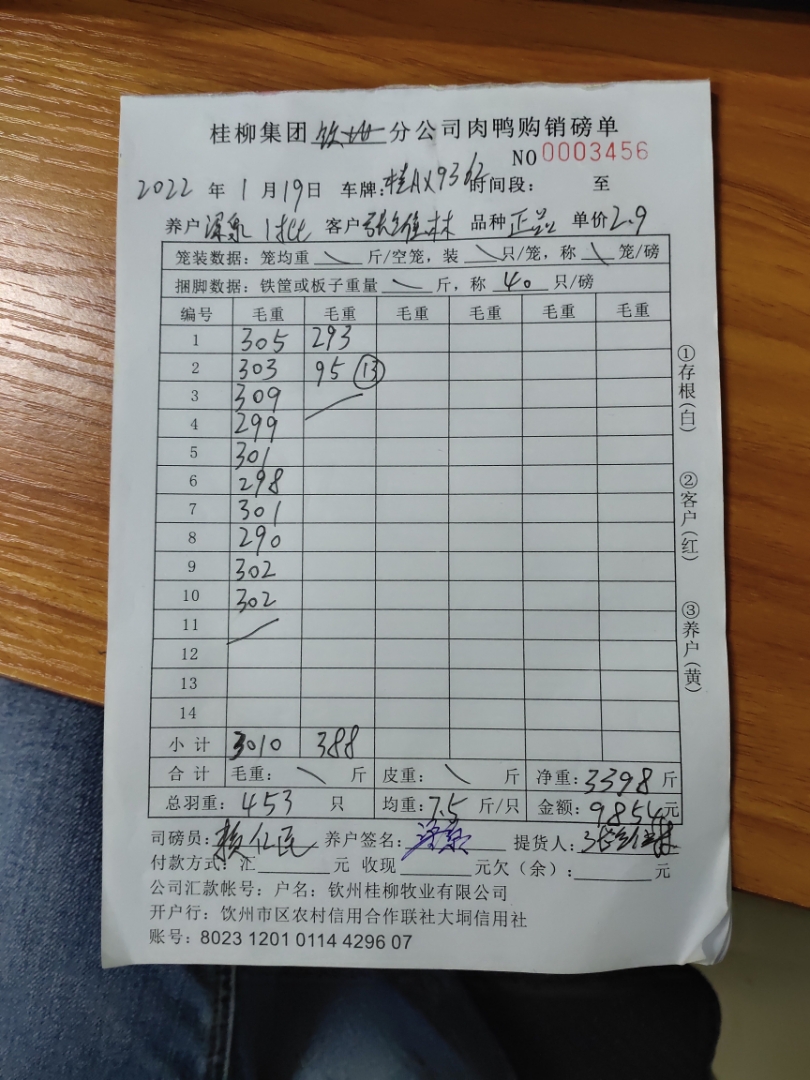 桂柳集团钦州分公司肉鸭购销磅单
NO 0003456
2022 年 1 月 19 日 车牌: 桂AX93 时间段: 至
养户 深泉 1批 客户 张维林 品种 正品 单价 2.9
笼装数据: 笼均重 \ 斤/空笼, 装 \ 只/笼, 称 \ 笼/磅
捆脚数据: 铁筐或板子重量 \ 斤, 称 40 只/磅
编号 毛重 毛重 毛重 毛重 毛重 毛重
1 305 293
2 303 95 ⑬
3 309
4 299
5 301
6 298
7 301
8 290
9 302
10 302
11
12
13
14
小计 3010 388
合计 毛重: \ 斤 皮重: \ 斤 净重: 3398 斤
总羽重: 453 只 均重: 7.5 斤/只 金额: 9854 元
司磅员: 赖仁民 养户签名: 提货人: 张维林
付款方式: 汇 元 收现 元欠(余): 元
公司汇款帐号: 户名: 钦州桂柳牧业有限公司
开户行: 饮州市区农村信用合作联社大垌信用社
账号: 8023 1201 0114 4296 07
①存根(白)
②客户(红)
③养户(黄)